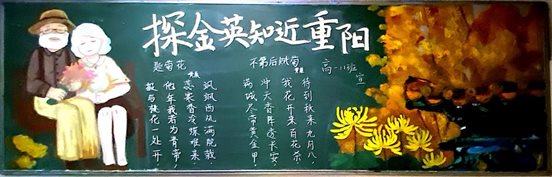 探金英知近重阳
高一11班
宣
不第后赋菊
黄巢
待到秋来九月八，
我花开来百花杀。
冲天香阵透长安，
满城尽带黄金甲。
题菊花
黄巢
飒飒西风满院栽，
蕊寒香冷蝶难来。
他年我若为青帝，
报与桃花一处开。